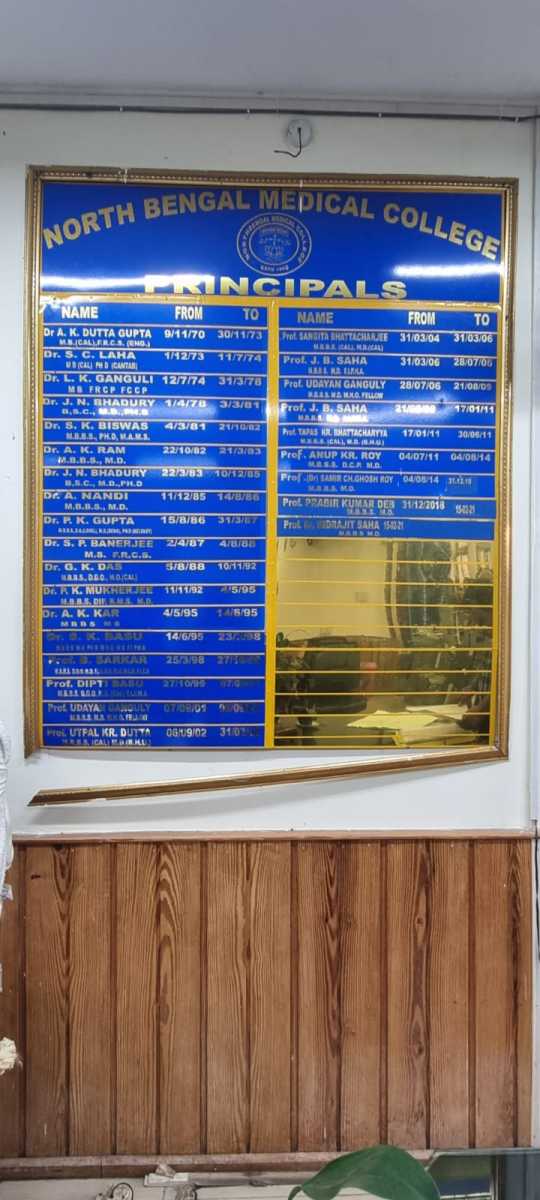 NORTH BENGAL MEDICAL COLLEGE
PRINCIPALS
NAME FROM TO
Dr A. K. DUTTA GUPTA 9/11/70 30/11/73
M.B.(CAL),F.R.C.S. (ENG.)
Dr. S. C. LAHA 1/12/73 11/7/74
M B (CAL) PH D (CANTAB)
Dr. L. K. GANGULI 12/7/74 31/3/78
M B FRCP FCCP
Dr. J. N. BHADURY 1/4/78 3/3/81
B.S.C., M.D., PH.D
Dr. S. K. BISWAS 4/3/81 21/10/82
M.B.B.S., PH.D, M.A.M.S.
Dr. A. K. RAM 22/10/82 21/3/83
M.B.B.S., M.D.
Dr. J. N. BHADURY 22/3/83 10/12/85
B.S.C., M.D.,PH.D
Dr. A. NANDI 11/12/85 14/8/86
M.B.B.S., M.D.
Dr. P. K. GUPTA 15/8/86 31/3/87
Dr. S. P. BANERJEE 2/4/87 4/8/88
M.S. F.R.C.S.
Dr. G. K. DAS 5/8/88 10/11/92
M.B.B.S., D.G.O., M.O.(CAL)
Dr. P. K. MUKHERJEE 11/11/92 4/5/95
M.B.B.S. DIP. M.D.
Dr. A. K. KAR 4/5/95 14/6/95
M B B S M S
Dr. S. K. BASU 14/6/95
Prof. B. SARKAR 25/3/98
Prof. DIPTI BASU 27/10/99
Prof. UDAYAN GANGULY 07/09/01
Prof. UTPAL KR. DUTTA 06/09/02
M.B.B.S. (CAL) M.D (B.H.U.)
NAME FROM TO
Prof. SANGITA BHATTACHARJEE 31/03/04 31/03/06
M.B.B.S. (CAL), M.D.(CAL)
Prof. J. B. SAHA 31/03/06 28/07/06
M.B.B.S. M.D. F.I.P.H.A.
Prof. UDAYAN GANGULY 28/07/06 21/08/09
M.B.B.S. M.D. W.H.O. FELLOW
Prof. J. B. SAHA 17/01/11
Prof. TAPAS KR. BHATTACHARYYA 17/01/11 30/06/11
M.B.B.S. (CAL), M.D. (B.H.U.)
Prof. ANUP KR. ROY 04/07/11 04/08/14
M.B.B.S. D.C.P. M.D.
Prof .(Dr) SAMIR CH.GHOSH ROY 04/08/14 31.12.18
M.B.B.S. M.D.
Prof. PRABIR KUMAR DEB 31/12/2018 15-02-21
M.B.B.S. M.D.
Prof. INDRAJIT SAHA 15-02-21
M.B.B.S M.D.